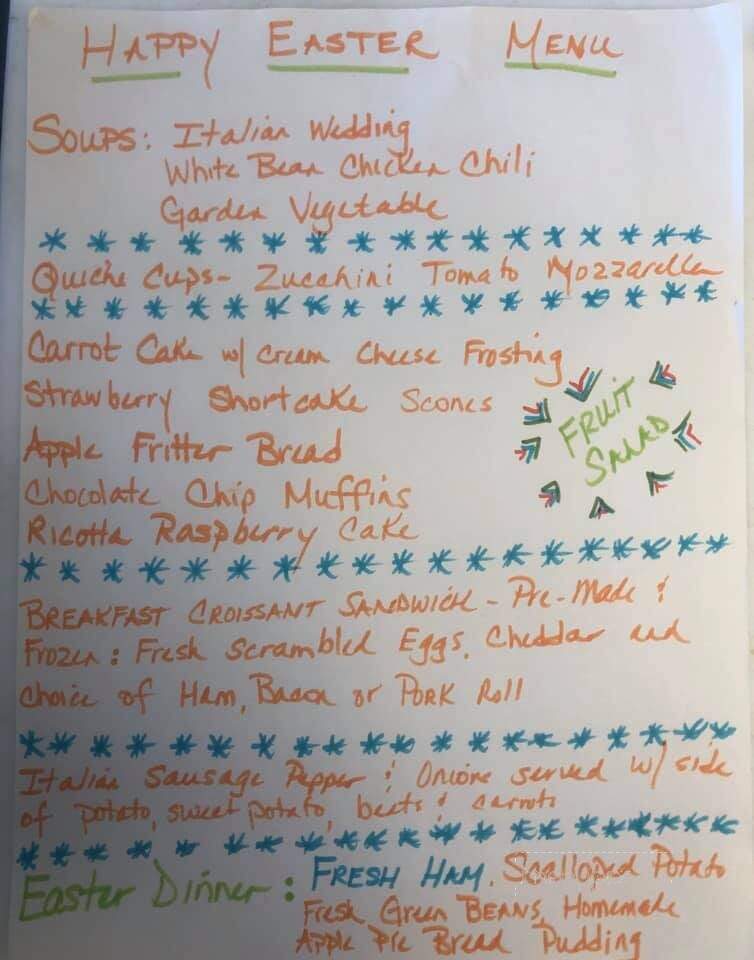 HAPPY EASTER MENU
SOUPS: Italian Wedding
White Bean Chicken Chili
Garden Vegetable
Quiche Cups- Zucchini Tomato Mozzarella
Carrot Cake w/ Cream Cheese Frosting
Strawberry Shortcake Scones
Apple Fritter Bread
Chocolate Chip Muffins
Ricotta Raspberry Cake
FRUIT
SALAD
BREAKFAST CROISSANT SANDWICH - Pre-Made &
Frozen: Fresh Scrambled Eggs, Cheddar and
choice of Ham, Bacon or PORK Roll
Italian Sausage Pepper & Onions served w/ side
of potato, sweet potato, beets & carrots
Easter Dinner: FRESH HAM, Scalloped Potato
Fresh Green BEANS, Homemade
Apple Pie Bread Pudding